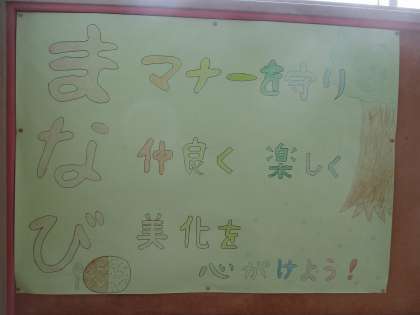 まなび
マナーを守り
仲良く 楽しく
美化を
心がけよう!